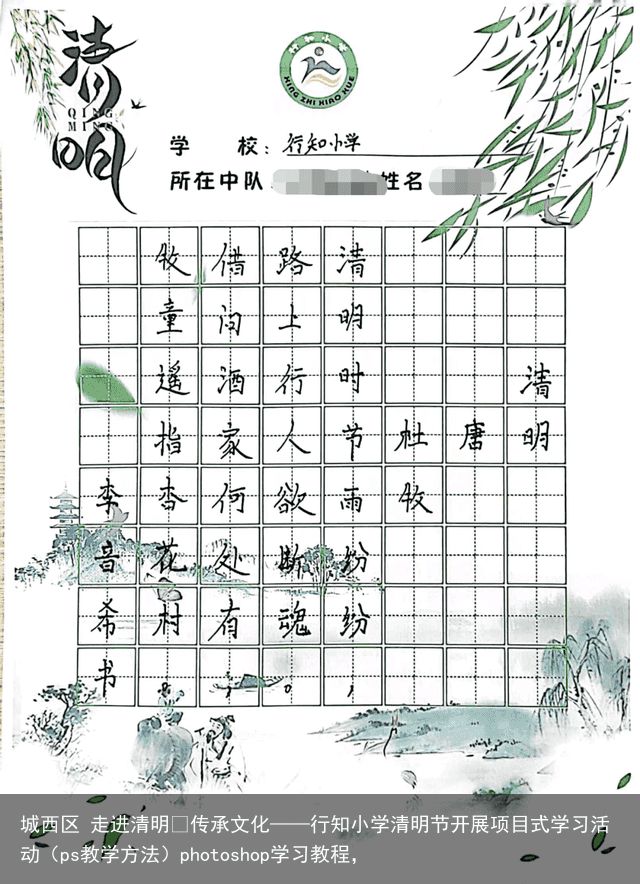 清明
QING
MING
行知小学
XING ZHI XIAO XUE
学 校：行知小学
所在中队 姓名
清明
唐
杜牧
清明时节雨纷纷，
路上行人欲断魂。
借问酒家何处有，
牧童遥指杏花村。
李音希书
城西区 走进清明□传承文化——行知小学清明节开展项目式学习活
动（ps教学方法）photoshop学习教程，